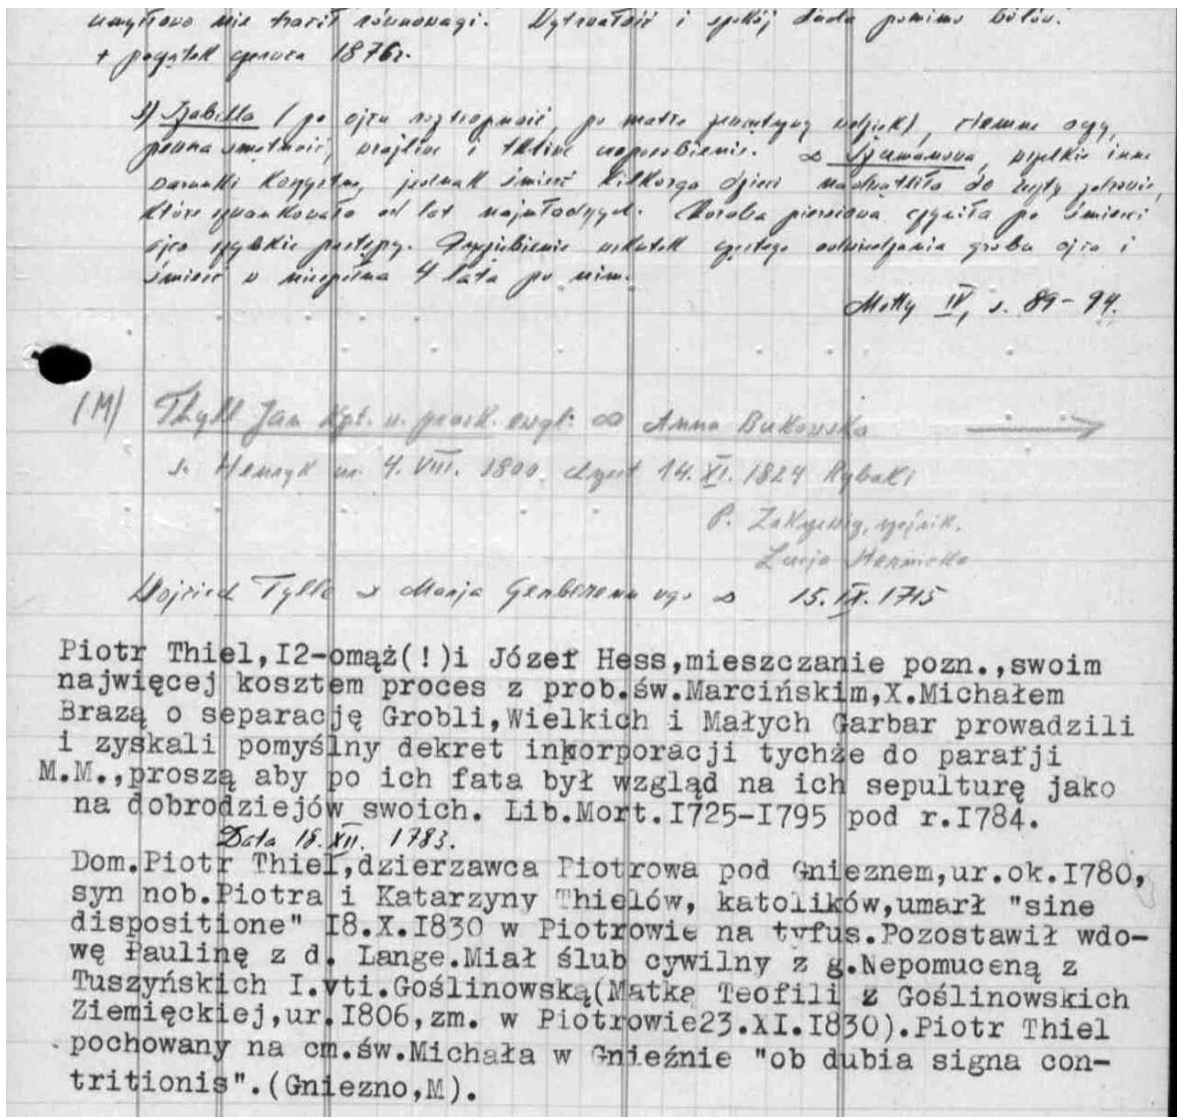 umysłowo nie tracił równowagi. Wytrwałość i spokój ducha pomimo bólów.
+ początek czerwca 1876r.
s) Izabella (po ojcu roztropność, po matce zewnętrzny wdzięk), ciemne oczy,
pewna smętność, wrażliwe i tkliwe usposobienie. ∞ Szumanowa, wszelkie inne
warunki korzystne, jednak śmierć kilkorga dzieci nadwątliła do reszty zdrowie,
które szwankowało od lat najmłodszych. Choroba piersiowa czyniła po śmierci
ojca szybkie postępy. Przeziębienie wskutek częstego odwiedzania grobu ojca i
śmierć w niespełna 4 lata po nim.
Motty IV, s. 89-94.
(M) Thyll Jan Kpt. w. prusk. ewgl. ∞ Anna Bukowska
s. Henryk ur. 4. VIII. 1800, chrzest 14. XI. 1824 Rybaki
P.
Łucja
Wojciech Tylle Marja 15. IX. 1715
Piotr Thiel,I2-omąż(!)i Józef Hess,mieszczanie pozn.,swoim
najwięcej kosztem proces z prob.św.Marcińskim,X.Michałem
Brazą o separację Grobli,Wielkich i Małych Garbar prowadzili
i zyskali pomyślny dekret inkorporacji tychże do parafji
M.M.,proszą aby po ich fata był wzgląd na ich sepulturę jako
na dobrodziejów swoich. Lib.Mort.I725-I795 pod r.I784.
Data 18. XII. 1783.
Dom.Piotr Thiel,dzierzawca Piotrowa pod Gnieznem,ur.ok.I780,
syn nob.Piotra i Katarzyny Thielów, katolików,umarł "sine
dispositione" I8.X.I830 w Piotrowie na tyfus.Pozostawił wdo-
wę Paulinę z d. Lange.Miał ślub cywilny z g.Nepomuceną z
Tuszyńskich I.vti.Goślinowską(Matka Teofili z Goślinowskich
Ziemięckiej,ur.I806,zm. w Piotrowie23.XI.I830).Piotr Thiel
pochowany na cm.św.Michała w Gnieźnie "ob dubia signa con-
tritionis".(Gniezno,M).